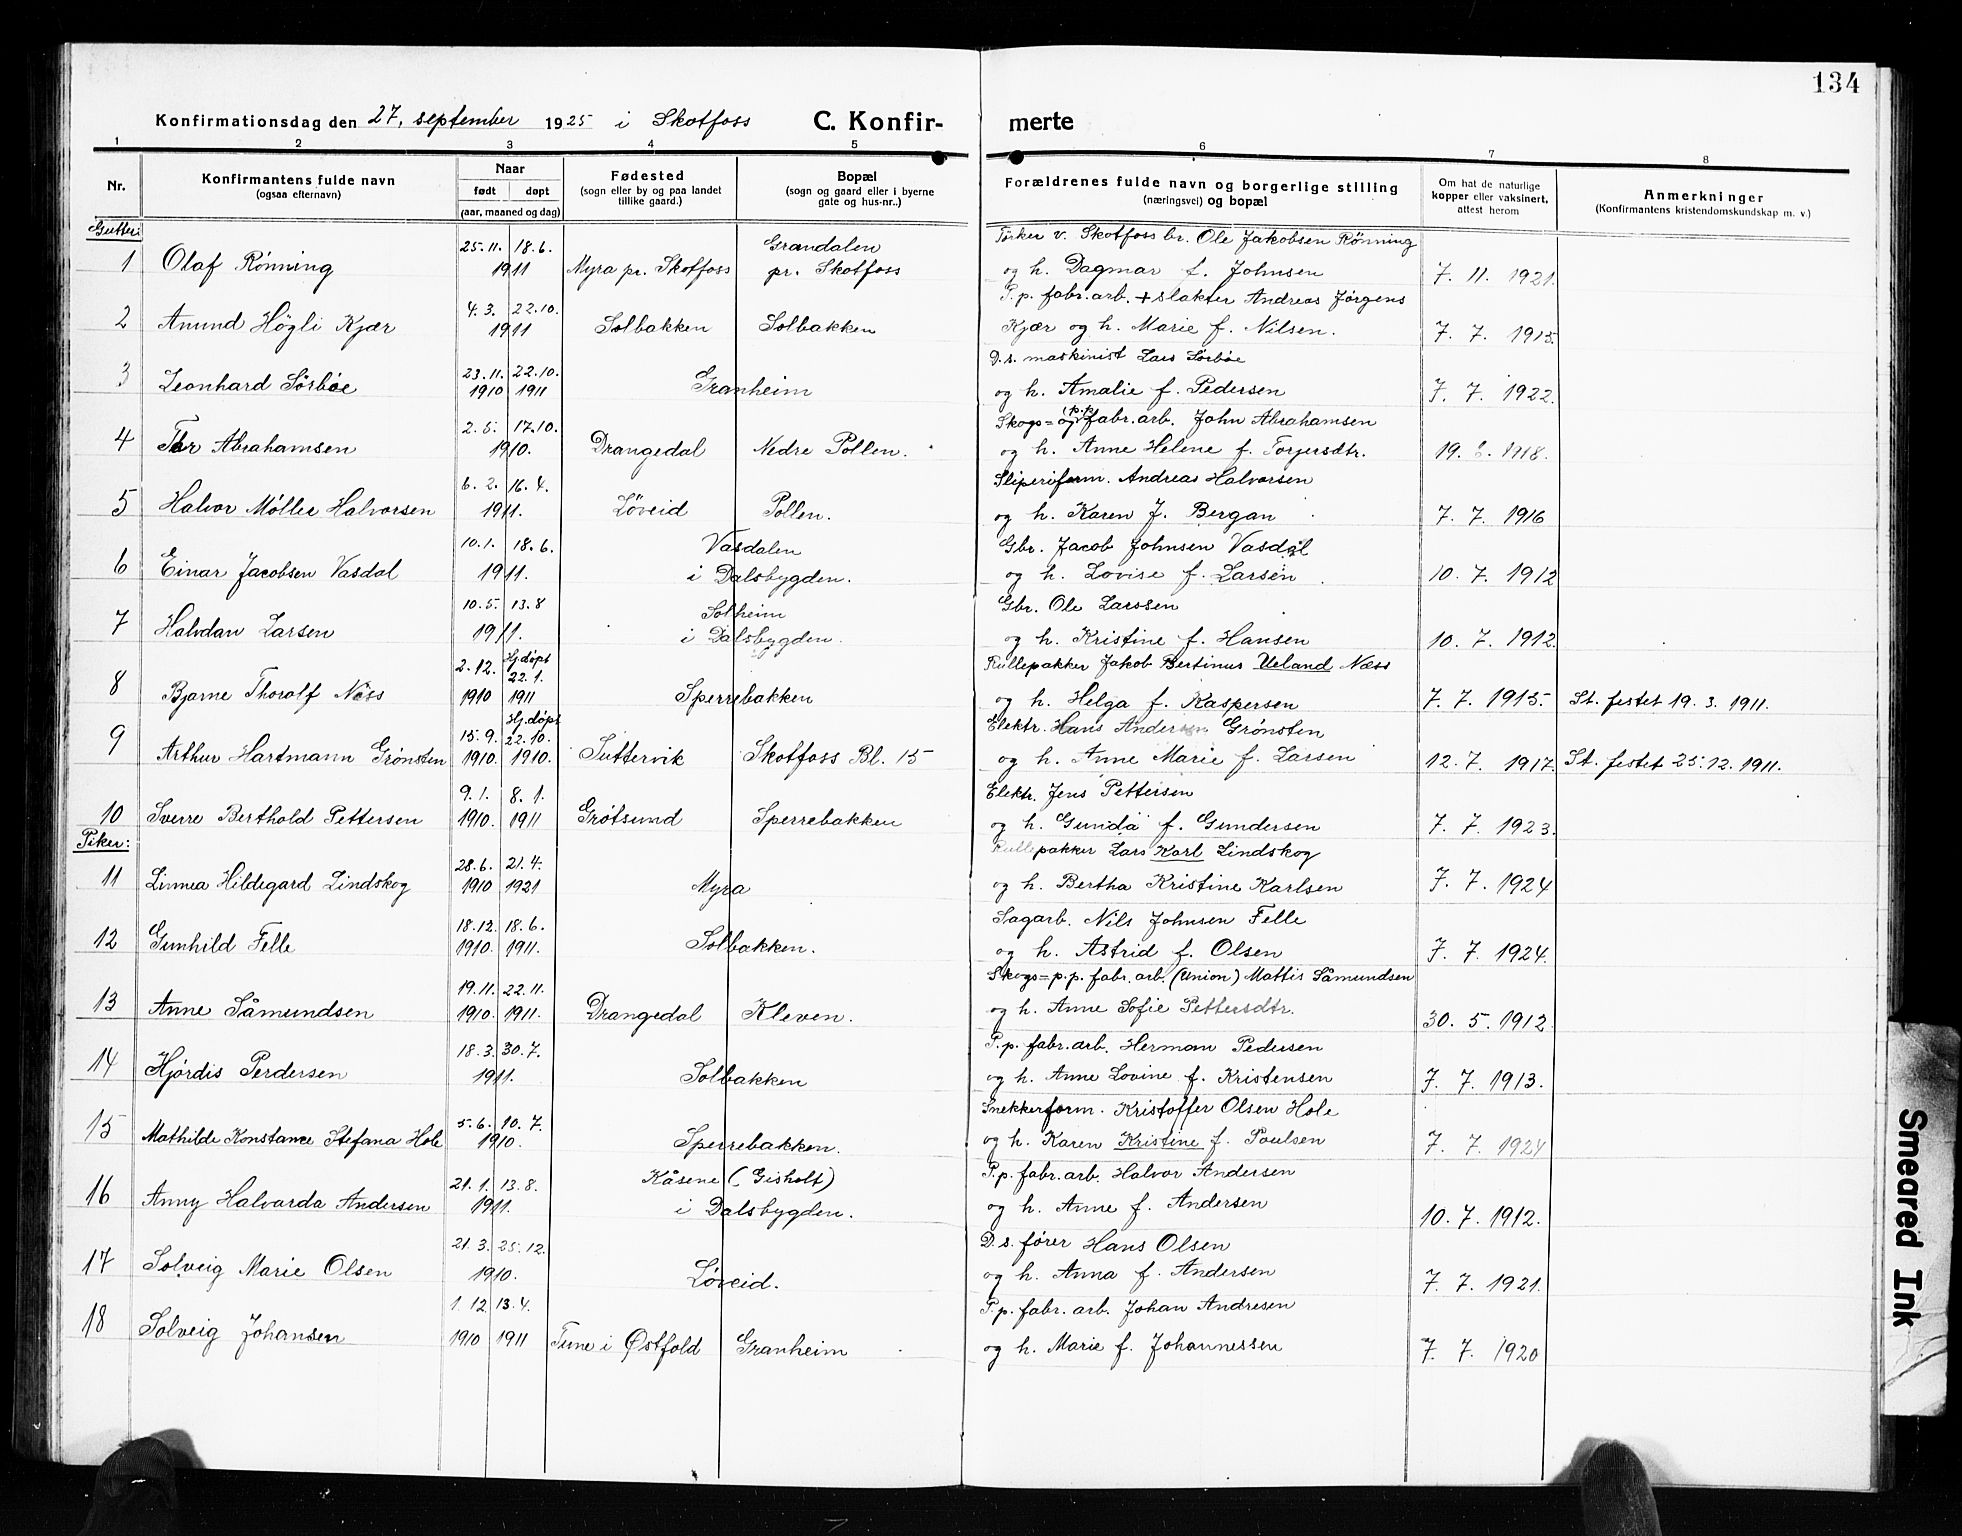 134
Konfirmationsdag den 27. september 1925 i Skotfoss C. Konfir- merte
1 2 3 4 5 6 7 8
Nr.
Konfirmantens fulde navn
(ogsaa efternavn)
Naar
født døpt
(aar, maaned og dag)
Fødested
(sogn eller by og paa landet
tillike gaard.)
Bopæl
(sogn og gaard eller i byerne
gate og hus-nr..)
Forældrenes fulde navn og borgerlige stilling
(næringsvei) og bopæl
Om hat de naturlige
kopper eller vaksinert,
attest herom
Anmerkninger
(Konfirmantens kristendomskundskap m. v.)
Gutter:
25.11. 18.6. Grandalen Tørker v. Skotfoss br. Ole Jakobsen Rönning
1 Olaf Rönning 1911 Myra pr. Skotfoss pr. Skotfoss og h. Dagmar f. Johnsen 7. 11. 1921.
4.3. 22.10. P.p. fabr.arb. + slakter Andreas Jørgens
2 Anund Högli Kjær 1911 Solbakken Solbakken Kjær og h. Marie f. Nilsen. 7. 7. 1915.
23.11. 22.10. D.s. maskinist Lars Sörböe
3 Leonhard Sörböe 1910 1911 Granheim og h. Amalie f. Pedersen 7. 7. 1922.
2.5. 17.10. Skogs= og p.p. fabr.arb. John Abrahamsen
4 Tor Abrahamsen 1910. Drangedal Nedre Pollen. og h. Anne Helene f. Torjersdtr. 19. 1918.
6.2. 16.4. Sliperiform. Andreas Halvorsen
5 Halvor Möller Halvorsen 1911. Löveid Pollen. og h. Karen f. Bergan 7. 7. 1916
10.1. 18.6. Vasdalen Gbr. Jacob Johnsen Vasdal
6 Einar Jacobsen Vasdal 1911. i Dalsbygden. og h. Lovise f. Larsen 10. 7. 1912
10.5. 13.8 Solheim Gbr. Ole Larssen
7 Halvdan Larsen 1911. i Dalsbygden. og h. Kristine f. Hansen 10. 7. 1912.
2.12. Hj.døpt 22.1. Rullepakker Jakob Bertinus Ueland Næss
8 Bjarne Thoralf Næss 1910 1911 Sperrebakken og h. Helga f. Kaspersen 7. 7. 1915. St. festet 19. 3. 1911.
15.9. Hj.døpt 22.10. Elektr. Hans Andersen Grønsten
9 Arthur Hartmann Grønsten 1910. 1910. Suttervik Skotfoss Bl. 15 og h. Anne Marie f. Larsen 12. 7. 1917. St. festet 25.12.1911.
9.1. 8.1. Elektr. Jens Pettersen
10 Sverre Berthold Pettersen 1910. 1911 Grötsund Sperrebakken og h. Gunda f. Gundersen 7. 7. 1923.
Piker:
28.6. 21.4. Rullepakker Lars Karl Lindskog
11 Linnea Hildegard Lindskog 1910 1921 Myra og h. Bertha Kristine Karlsen 7. 7. 1924
18.12. 18.6. Sagarb. Nils Johnsen Felle
12 Gunhild Felle 1910. 1911. Solbakken. og h. Astrid f. Olsen 7. 7. 1924.
19.11. 22.11. Skogs= p.p. fabr.arb. (Union) Mattis Såmundsen
13 Anne Såmundsen 1910. 1911. Drangedal Kleven. og h. Anne Sofie Pettersdtr. 30. 5. 1912.
18.3. 30.7. P.p. fabr.arb. Herman Pedersen
14 Hjördis Perdersen 1911. Solbakken og h. Anne Lovine f. Kristensen 7. 7. 1913.
5.6. 10.7. Snekkerform. Kristoffer Olsen Hole
15 Mathilde Konstance Stefana Hole 1910. Sperrebakken. og h. Karen Kristine f. Poulsen 7. 7. 1924
21.1. 13.8. Kåsene (Gisholt) P.p. fabr.arb. Halvor Andersen
16 Anny Halvarda Andersen 1911. i Dalsbygden. og h. Anne f. Andersen 10. 7. 1912.
21.3. 25.12. D.s. fører Hans Olsen
17 Solveig Marie Olsen 1910. Löveid. og h. Anna f. Andersen 7. 7. 1921.
1.12. 13.4. P.p. fabr. arb. Johan Andresen
18 Solveig Johansen 1910 1911 Tune i Østfold Granheim og h. Marie f. Johannessen 7. 7. 1920
Smeared Ink